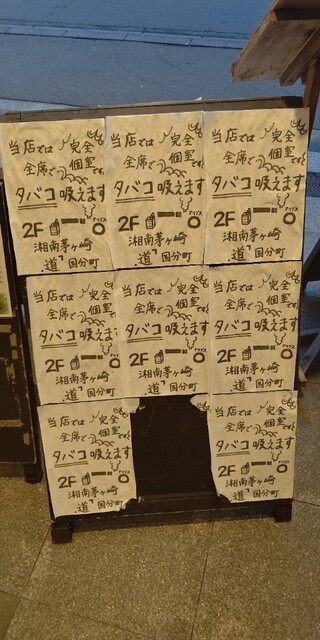 当店では 完全
全席で 個室です
タバコ 吸えます
2F
湘南茅ヶ崎
道 国分町
当店では 完全
全席で 個室です
タバコ 吸えます
2F
湘南茅ヶ崎
道 国分町
当店では 完全
全席で 個室です
タバコ 吸えます
2F
湘南茅ヶ崎
道 国分町
当店では 完全
全席で 個室
タバコ 吸えます
2F
湘南茅ヶ崎
道 国分町
当店では 完全
全席で 個室です
タバコ 吸えます
2F
湘南茅ヶ崎
道 国分町
当店では 完全
全席で 個室です
タバコ 吸えます
2F
湘南茅ヶ崎
道 国分町
当店では 完全
全席で 個室です
タバコ 吸えます
2F
湘南茅ヶ崎
道 国分町
当店では 完全
全席で 個室です
タバコ 吸えます
2F
湘南茅ヶ崎
道 国分町